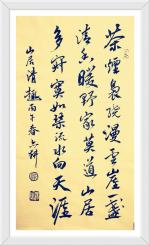 茶煙裊繞漫雲崖一盞
清香暖野家莫道山居
多寂寞如琴流水向天涯
山居清趣丙午春